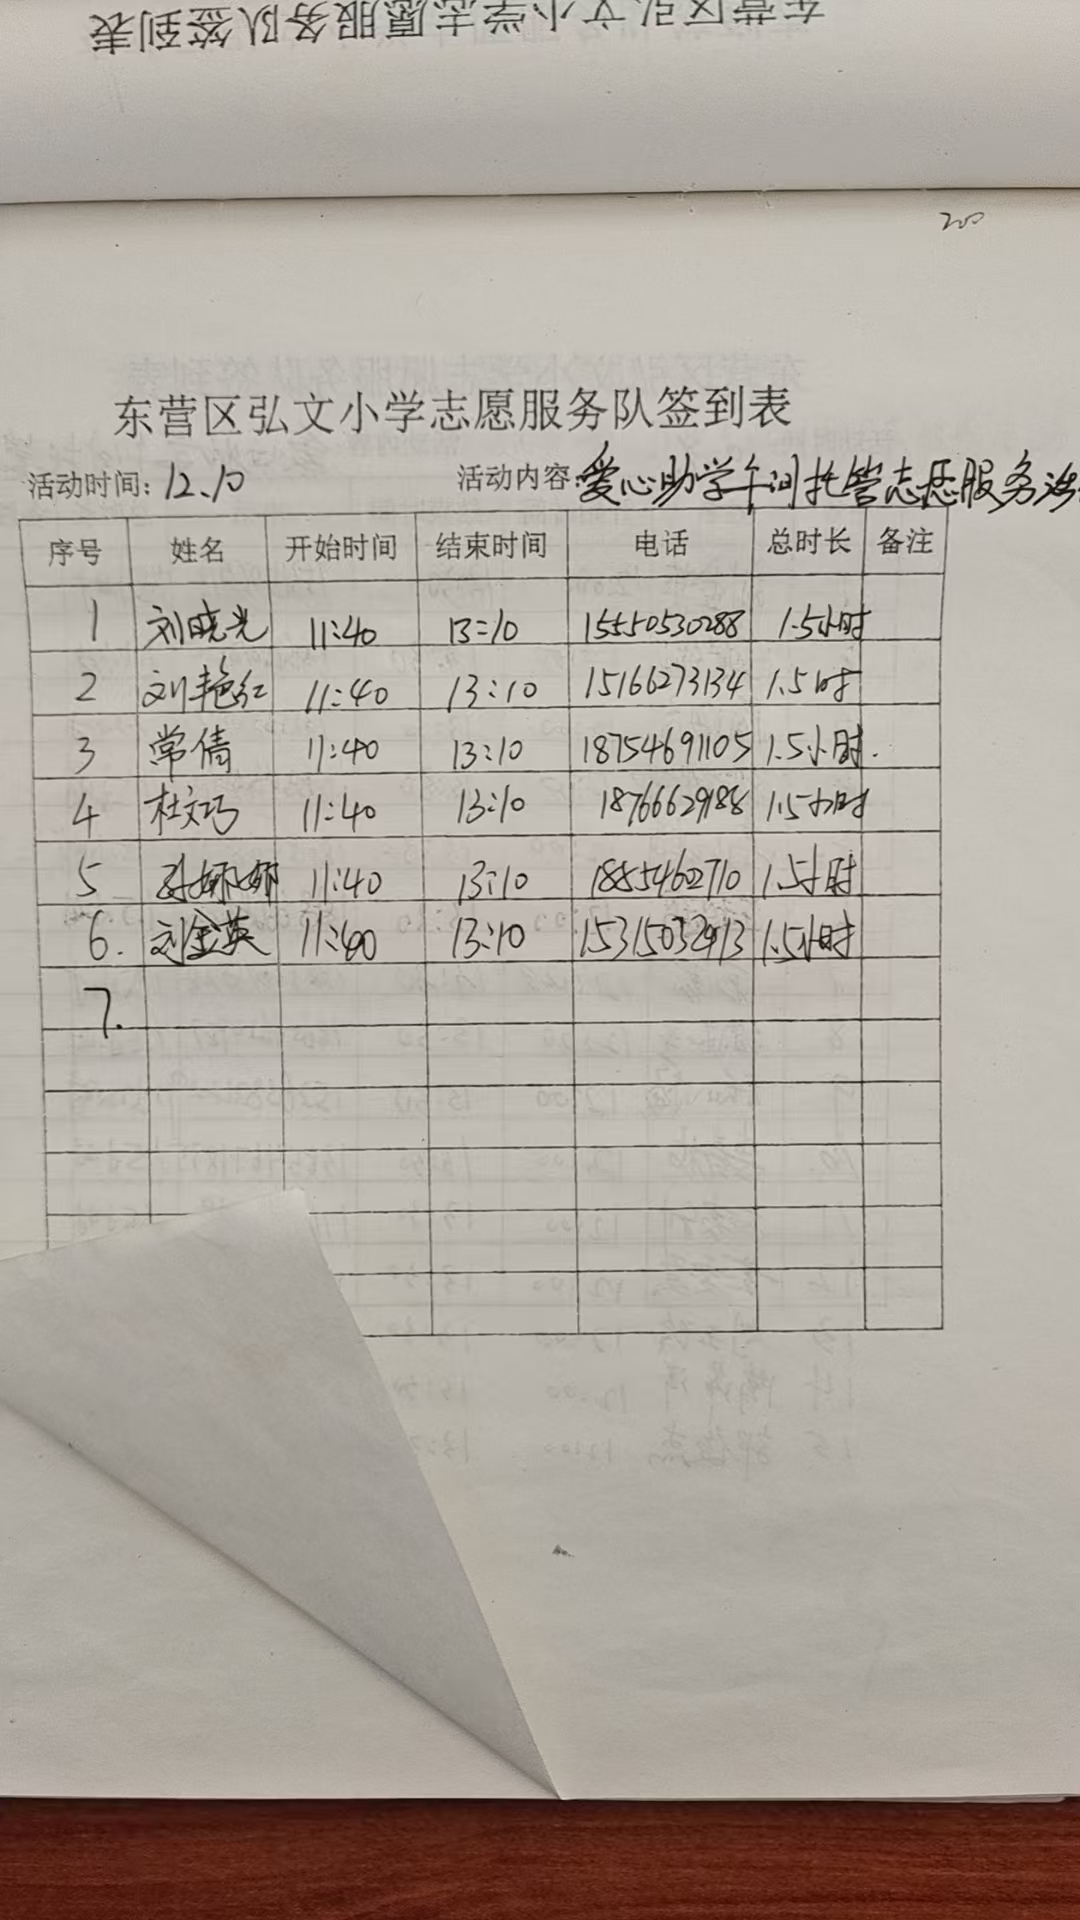 东营区弘文小学志愿服务队签到表
200
东营区弘文小学志愿服务队签到表
活动时间：12.10 活动内容：爱心助学午间托管志愿服务活
序号 姓名 开始时间 结束时间 电话 总时长 备注
1 刘晓光 11:40 13:10 15550530288 1.5小时
2 刘艳红 11:40 13:10 15166273134 1.5时
3 常倩 11:40 13:10 18754691105 1.5小时.
4 杜文巧 11:40 13:10 18766629188 1.5小时
5 孙娜娜 11:40 13:10 1855462710 1.5小时
6. 刘金英 11:40 13:10 15315032913 1.5小时
7.